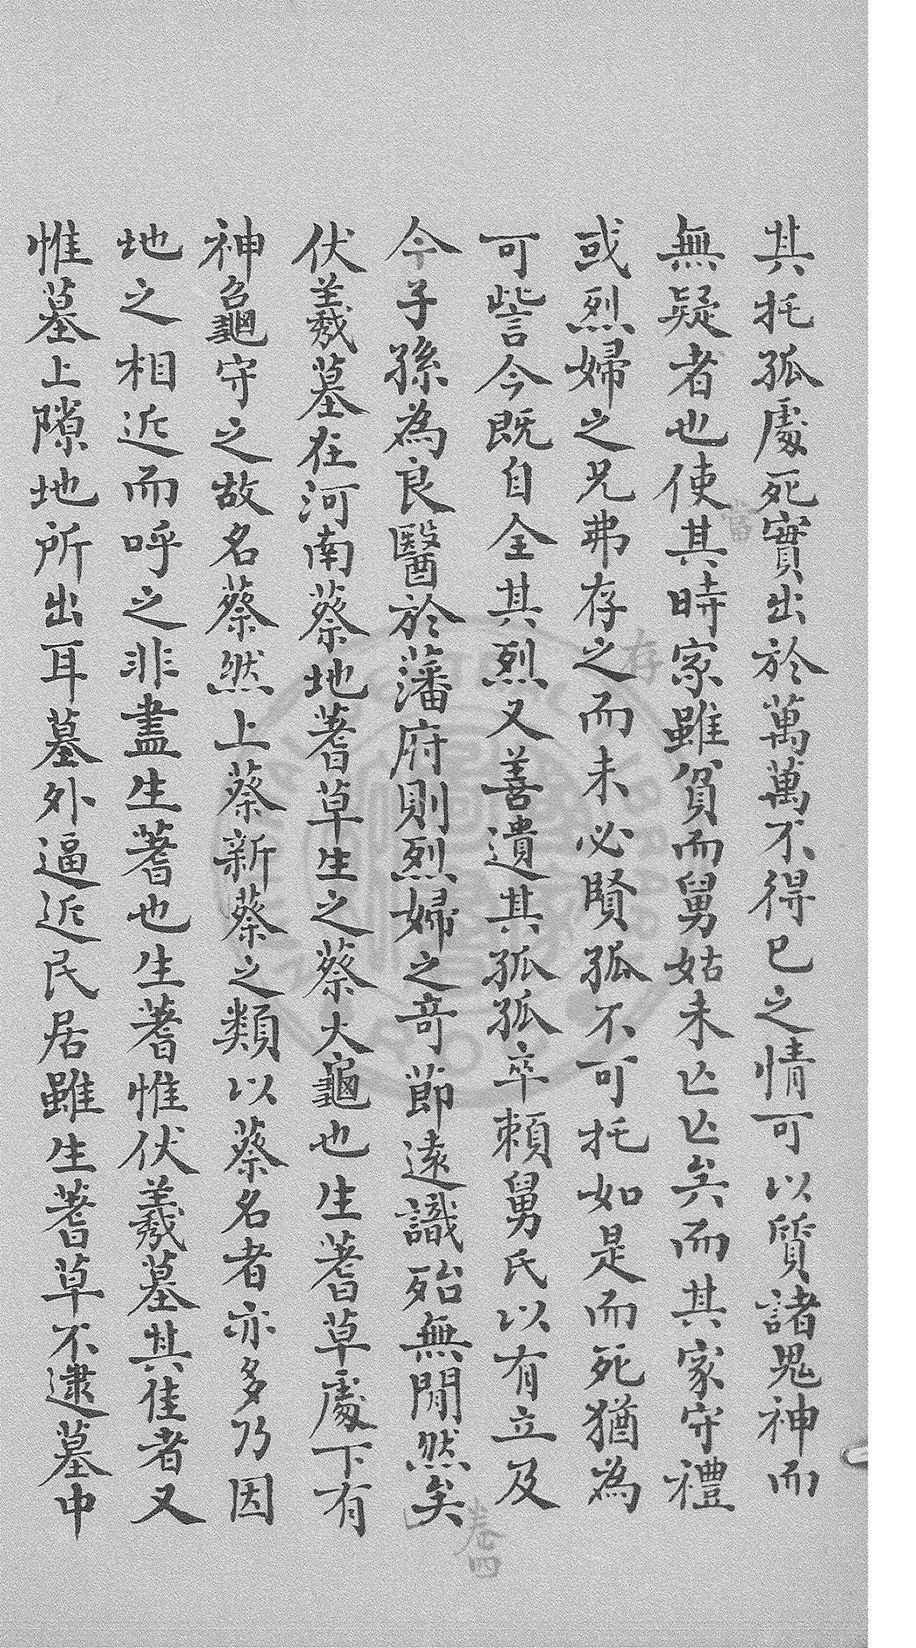 其托孤處死實出於萬萬不得已之情可以質諸鬼神而
無疑者也使其時家雖貧而舅姑未亡亡矣而其家守禮
當
或烈婦之兄弗存之而未必賢孤不可托如是而死猶為
存
可訾今既自全其烈又善遺其孤孤卒賴舅氏以有立及
今子孫為良醫於藩府則烈婦之奇節遠識殆無閒然矣
卷四
伏羲墓在河南蔡地蓍草生之蔡大龜也生蓍草處下有
神龜守之故名蔡然上蔡新蔡之類以蔡名者亦多乃因
地之相近而呼之非盡生蓍也生蓍惟伏羲墓其佳者又
惟墓上隙地所出耳墓外逼近民居雖生蓍草不逮墓中